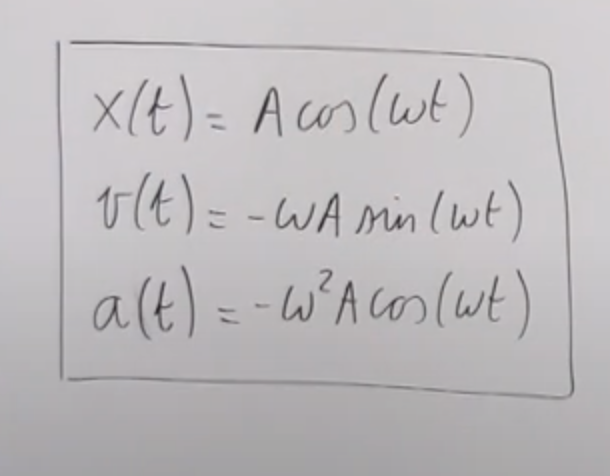 x(t) = A cos(ωt)
v(t) = -ωA sin(ωt)
a(t) = -ω²A cos(ωt)